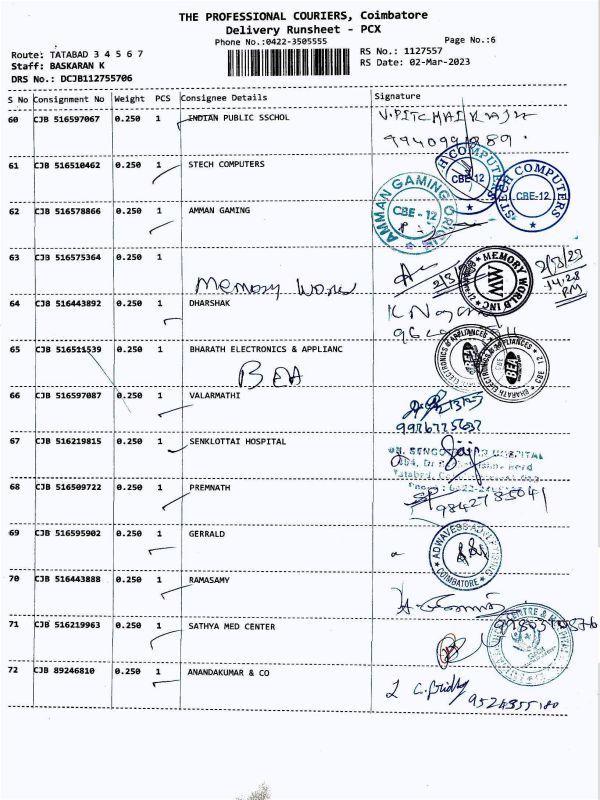 THE PROFESSIONAL COURIERS, Coimbatore
Delivery Runsheet - PCX
Phone No.:0422-3505555
Page No.:6
Route: TATABAD 3 4 5 6 7
Staff: BASKARAN K
DRS No.: DCJB112755706
RS No.: 1127557
RS Date: 02-Mar-2023
S No Consignment No Weight PCS Consignee Details Signature
60 CJB 516597067 0.250 1 INDIAN PUBLIC SSCHOL
61 CJB 516510462 0.250 1 STECH COMPUTERS
STECH COMPUTERS
CBE-12
62 CJB 516578866 0.250 1 AMMAN GAMING
AMMAN GAMING
CBE - 12
63 CJB 516575364 0.250 1
Memory World
MEMORY WORLD INC
2/3/23
14:28
PM
64 CJB 516443892 0.250 1 DHARSHAK
65 CJB 516511539 0.250 1 BHARATH ELECTRONICS & APPLIANC
BEA
BHARATH ELECTRONICS & APPLIANCES
BEA
CBE 12
66 CJB 516597087 0.250 1 VALARMATHI
67 CJB 516219815 0.250 1 SENKLOTTAI HOSPITAL
HOSPITAL
68 CJB 516509722 0.250 1 PREMNATH
9842785041
69 CJB 516595902 0.250 1 GERRALD
ADWAVESS ADVERTISING
COIMBATORE
70 CJB 516443888 0.250 1 RAMASAMY
71 CJB 516219963 0.250 1 SATHYA MED CENTER
72 CJB 89246810 0.250 1 ANANDAKUMAR & CO